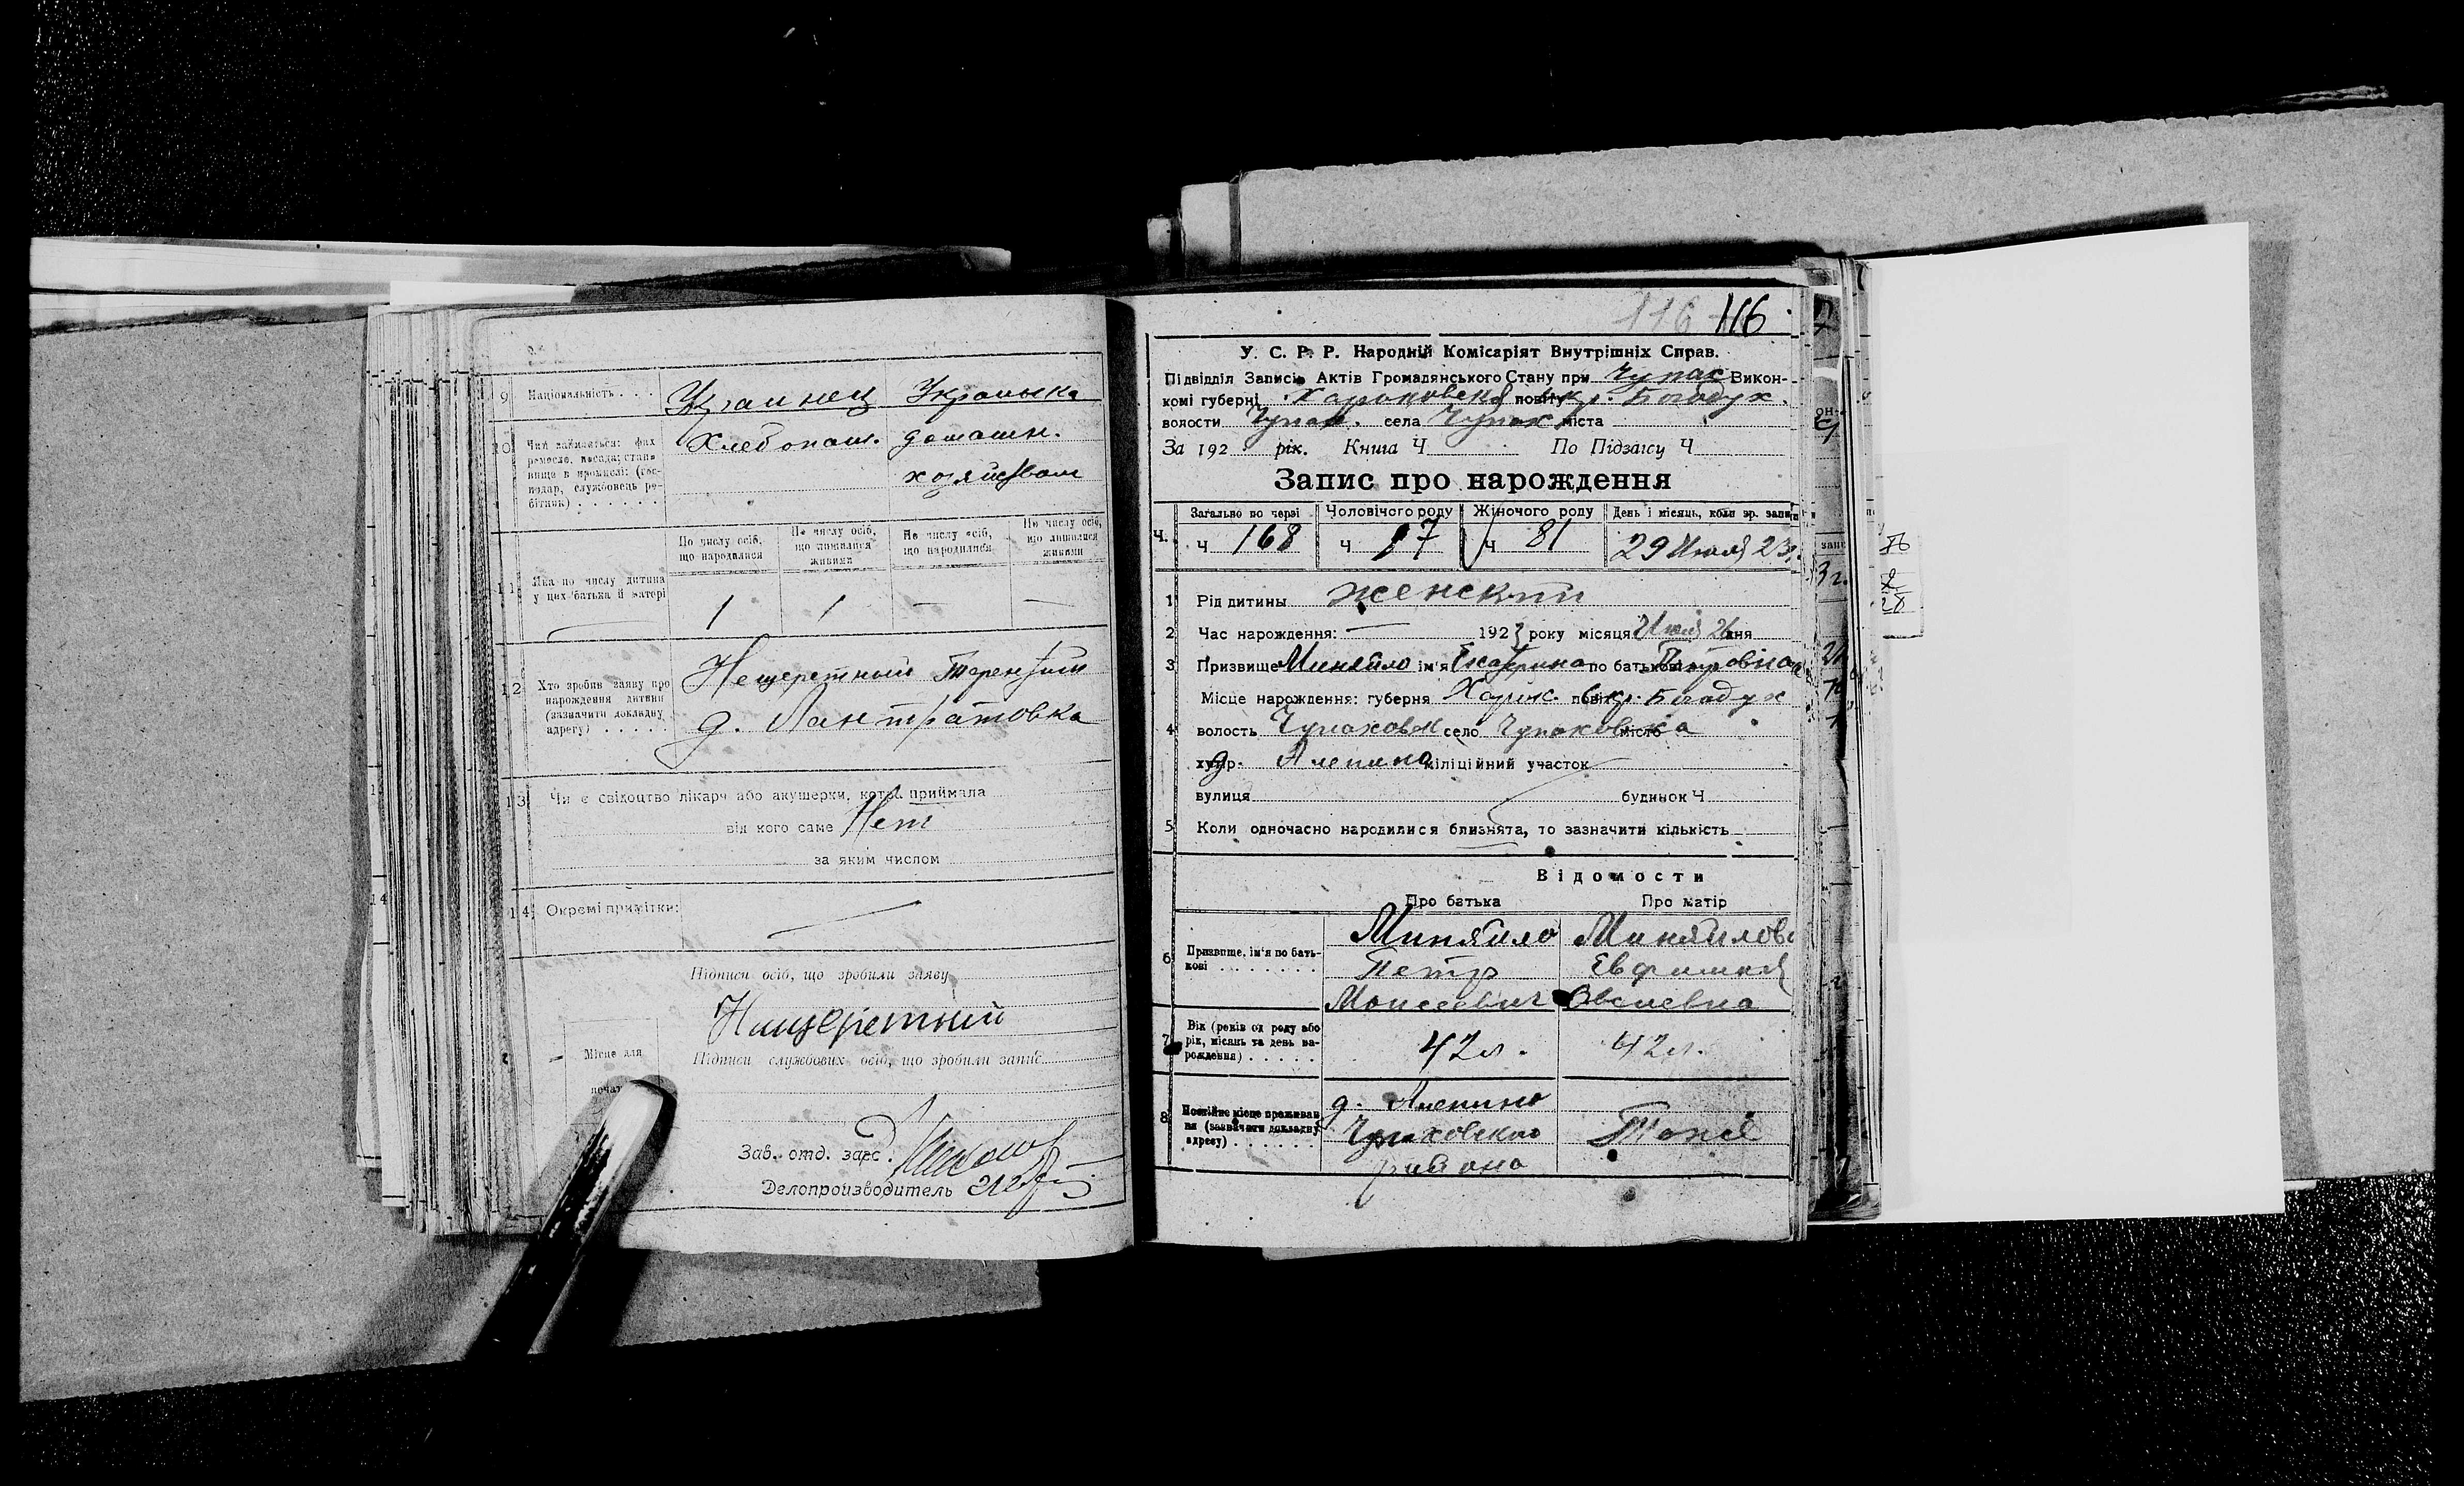 9 Національність . . . Украинец Украинка
10 Чим займається: фах Хлебопаш. домашн.
ремесло, посада; стано
вище в промислі: (гос- хозяйством
подар, службовець ро-
бітник) . . . . . .
По числу осіб, що народилися
По числу осіб, що лишилися живими
По числу осіб, що народилися
По числу осіб, що лишилися живими
11 Яка по числу дитина
у цих батька й матері 1 1 — —
12 Хто зробив заяву про
нарождення дитини
(зазначити докладну
адресу) . . . . .
Нещеретный Терентий
д. Лантратовка
13 Чи є свідоцтво лікаря або акушерки, котра приймала
від кого саме Нет
за яким числом
14 Окремі примітки: —
Підписи осіб, що зробили заяву
Нищеретний
Місце для
печат
Підписи службових осіб, що зробили запис
Зав. отд. загс.
Делопроизводитель
116 116
У. С. Р. Р. Народній Комісаріят Внутрішніх Справ.
Підвідділ Записів Актів Громадянського Стану при Чупах Викон-
комі губерні Харьковской повіту окр. Богодух.
волости Чупах. села Чупах міста
За 192 рік. Книга Ч По Підзагсу Ч
Запис про нарождення
Загально по черзі Чоловічого роду Жіночого роду День і місяць, коли зр. запис
Ч. Ч 168 Ч 87 Ч 81 29 Июля 23г.
1 Рід дитины женский
2 Час нарождення: — 1923 року місяця Июля 26 дня
3 Призвище Миняйло ім'я Екатерина по батькові Петровна
Місце нарождення: губерня Харьк. повіт окр. Богодух
4 волость Чупаховск село Чупаховка місто
хутір д. Алешино міліційний участок
вулиця будинок Ч
5 Коли одночасно народилися близнята, то зазначити кількість
Відомости
Про батька Про матір
6 Призвище, ім'я по бать-
кові . . . . . . . .
Миняйло Миняйлова
Петр Евфимия
Моисеевич
7 Вік (років од роду або
рік, місяць та день на-
рождення) . . . . .
42 л. 42 л.
8 Постійне місце проживан
ня (зазначити докладну
адресу) . . . . . . .
д. Алешино
Чупаховского Тоже
района